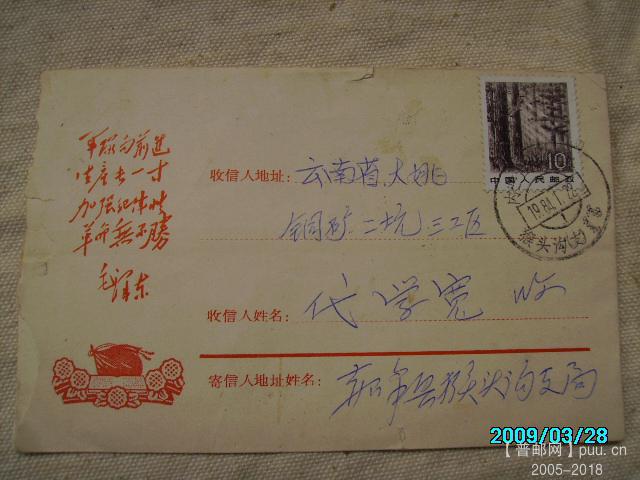 军队向前进
生产长一寸
加强纪律性
革命無不勝
毛泽东
10
中国人民邮政
收信人地址：云南省大姚
铜矿二坑三工区
1984.1.22
猴头沟(支)
收信人姓名：代学宽 收
寄信人地址姓名：猴头沟支局
2009/03/28
【普邮网】puu.cn
2005-2018